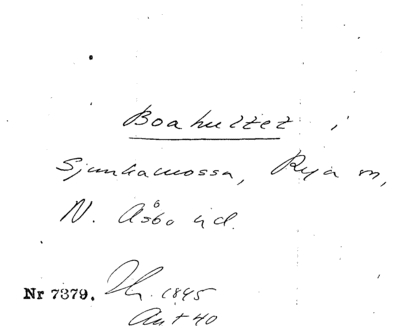 Boahultet i
Sjunkamossa, Rya sn,
N. Åsbo hd.
Nr 7379. 1845
Ant 40